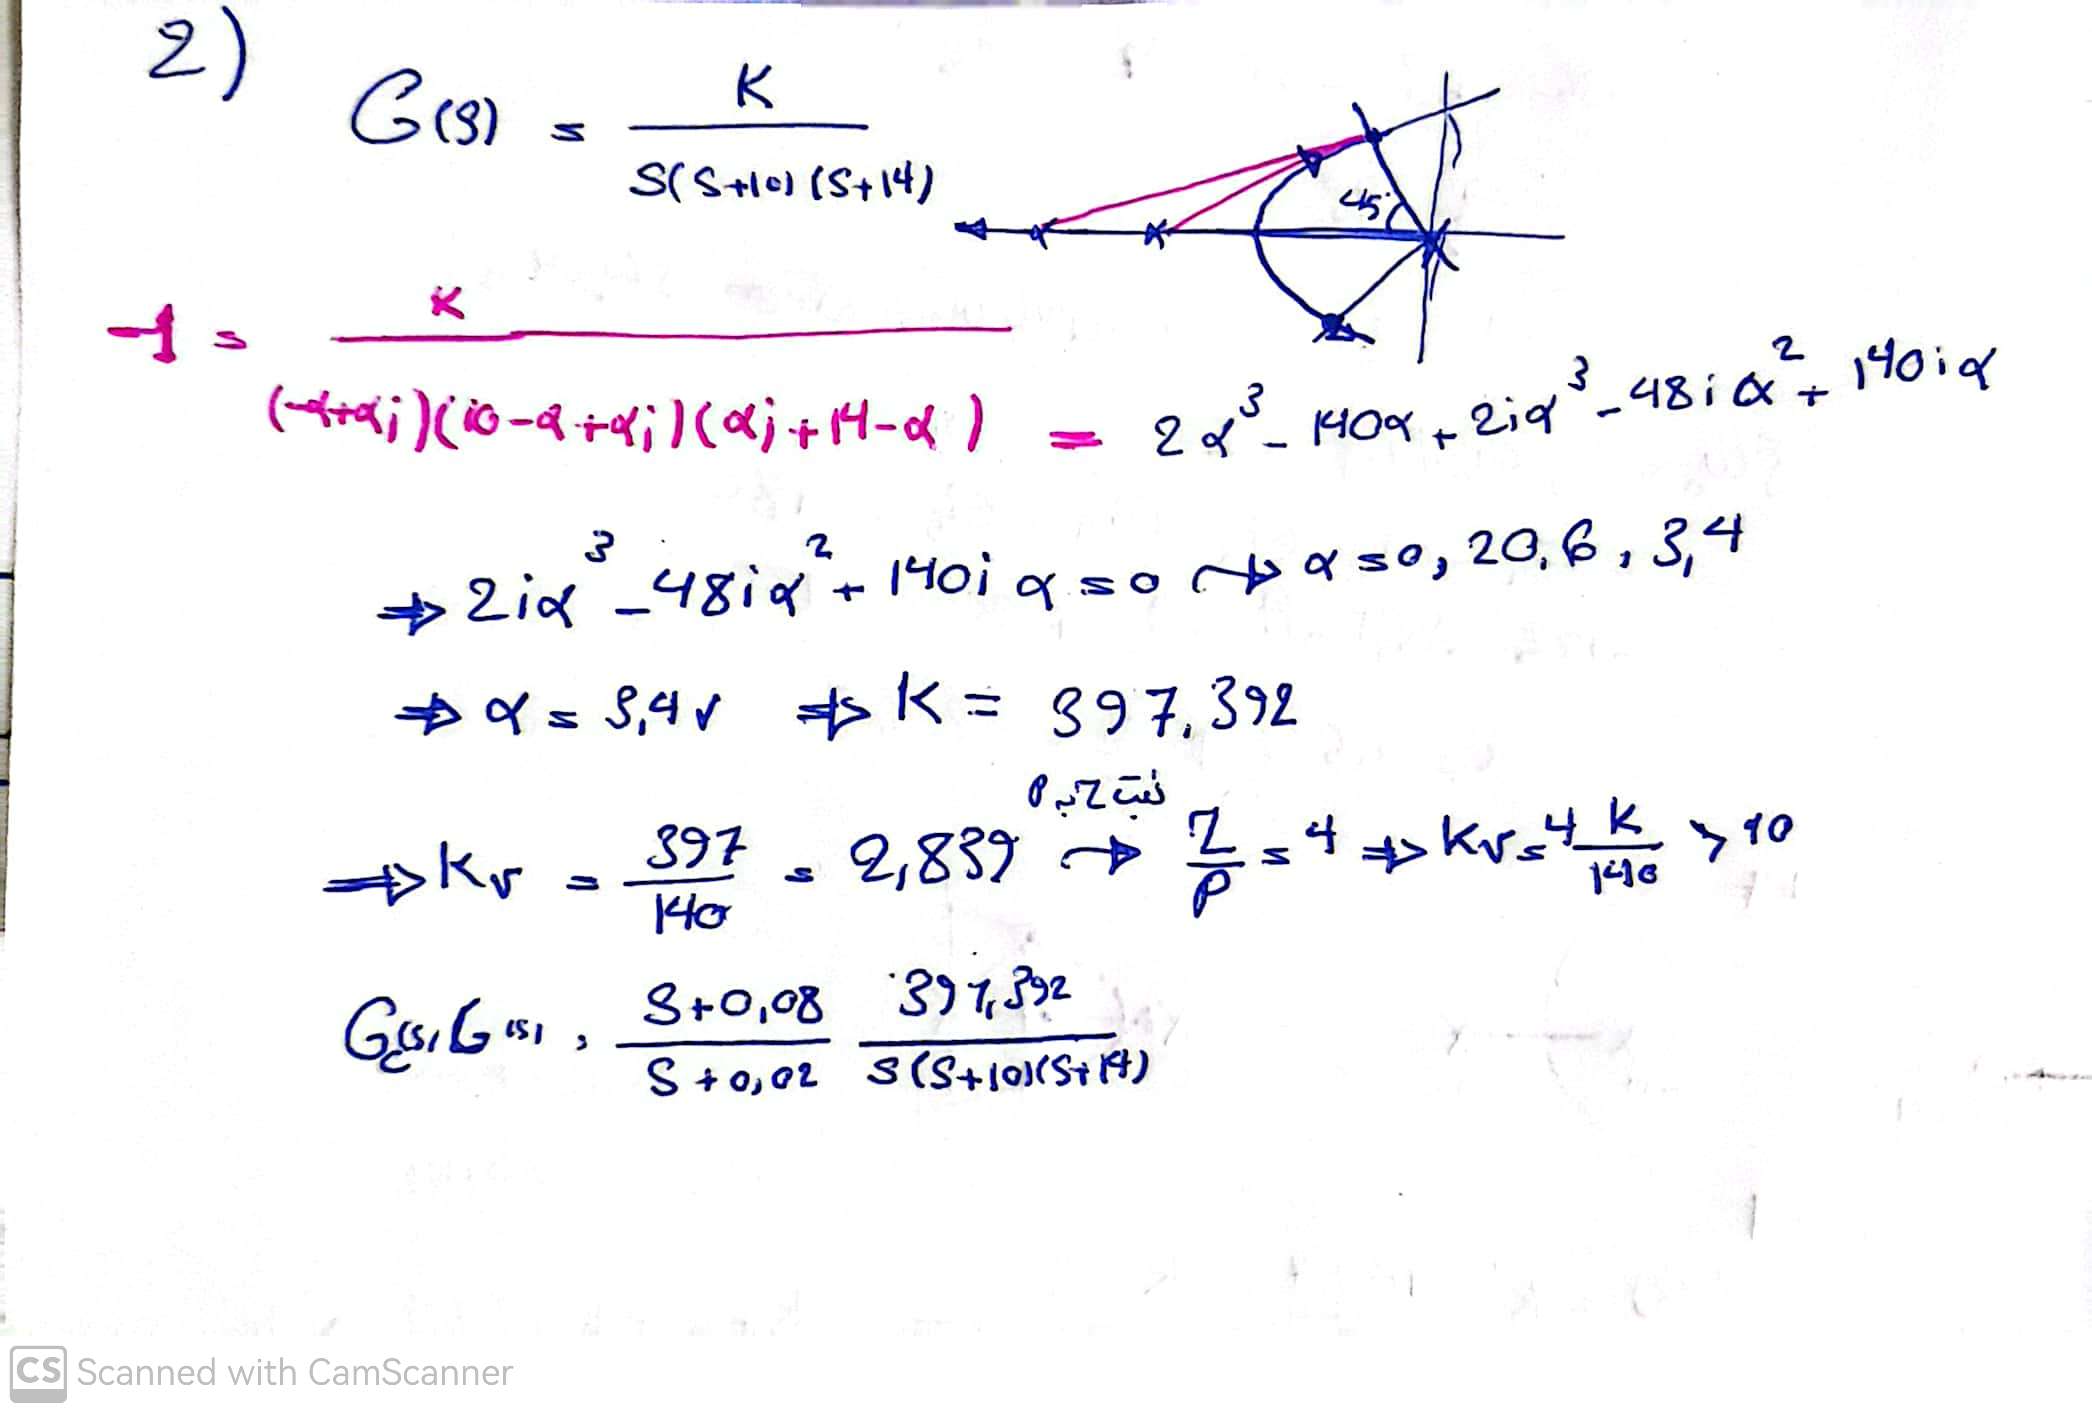 2)
G(s) = K / S(S+10)(S+14)
45°
-1 = K / (-α+αj)(10-α+αj)(αj+14-α) = 2α³ - 140α + 2iα³ - 48iα² + 140iα
⇒ 2iα³ - 48iα² + 140iα = 0 → α = 0, 20,6, 3,4
⇒ α = 3,4 ✓ ⇒ K = 397,392
نسبت Z به P
⇒ Kv = 397 / 140 = 2,839 → Z / P = 4 ⇒ Kv = 4 K / 140 > 10
Gc(s) G(s) = S+0,08 / S+0,02 397,392 / S(S+10)(S+14)
CS Scanned with CamScanner